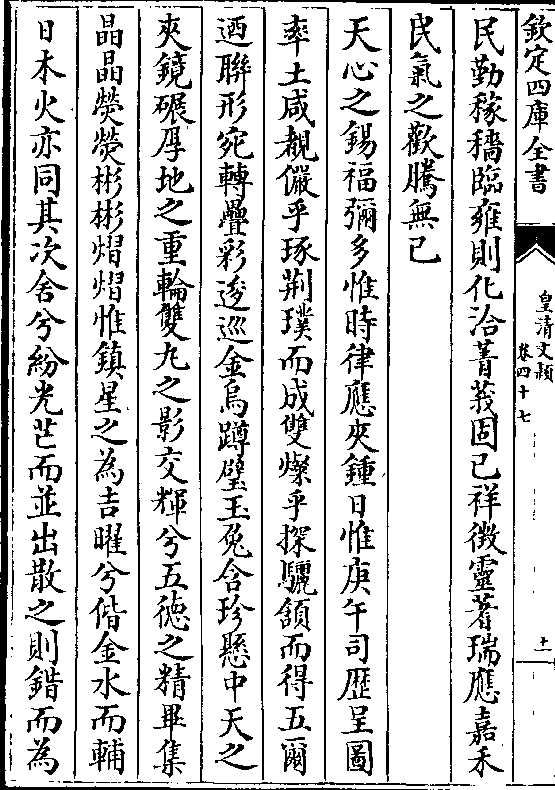 欽定四庫全書
皇清文穎
卷四十七
十一
民勤稼穡臨雍則化洽菁莪固已祥徴靈蓍瑞應嘉禾
民氣之歡騰無已
天心之錫福彌多惟時律應夾鍾日惟庚午司歴呈圖
率土咸覩儼乎琢荆璞而成雙燦乎探驪頷而得五爾
迺聯形宛轉疊彩逡巡金烏蹲璧玉兔含珍懸中天之
夾鏡碾厚地之重輪雙丸之影交輝兮五徳之精畢集
晶晶熒熒彬彬熠熠惟鎮星之為吉曜兮偕金水而輔
日木火亦同其次舍兮紛光芒而並出散之則錯而為